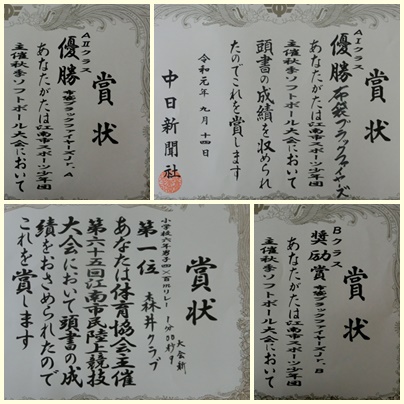 賞状
AⅡクラス
優勝
あなたがたは江南市スポーツ少年団
主催秋季ソフトボール大会において
賞状
AⅠクラス
優勝 布袋ブラックファイヤーズ
あなたがたは江南市スポーツ少年団
主催秋季ソフトボール大会において
頭書の成績を収められ
たのでこれを賞します
令和元年九月十四日
中日新聞社
賞状
小学校六年男子四×百mリレー 1分00秒9
大会新
第一位 森井クラブ
あなたは体育協会主催
第六十五回江南市民陸上競技
大会において頭書の成
績をおさめられたので
これを賞します
賞状
Bクラス
奨励賞
あなたがたは江南市スポーツ少年団
主催秋季ソフトボール大会において